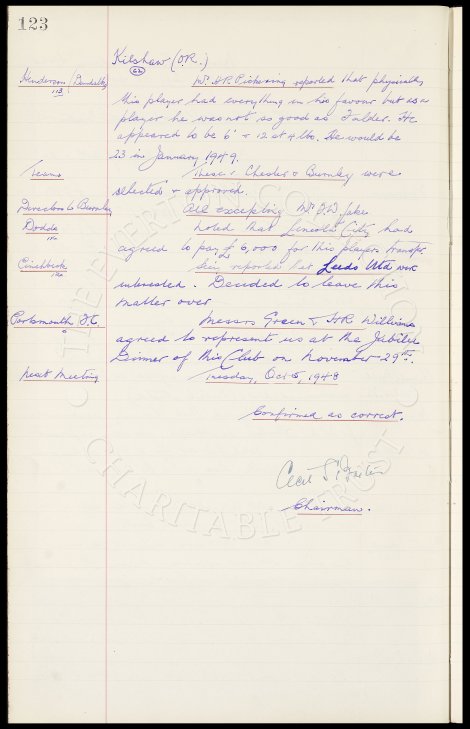 123
Kilshaw (O.R.)
62
Henderson (Dundalk) Mr. H.R. Pickering reported that physically
113
this player had everything in his favour but as a
player he was not so good as Falder. He
appeared to be 6' & 12 st 4 lbs. He would be
23 in January 1949.
Teams These v Chester & Burnley were
selected & approved.
Directors to Burnley All excepting Mr. J.W.
Dodds Noted that Lincoln City had
agreed to pay £6,000 for this players transfer
Pinchbeck reported that Leeds Utd were
interested. Decided to leave this
matter over
Portsmouth F.C. Messrs Green & H.R. Williams
agreed to represent us at the Jubilee
Dinner of this Club on November 29th.
Next Meeting Tuesday, Oct 5, 1948
Confirmed as correct.
Cecil S.
Chairman.
THE EVERTON COLLECTION
CHARITABLE TRUST